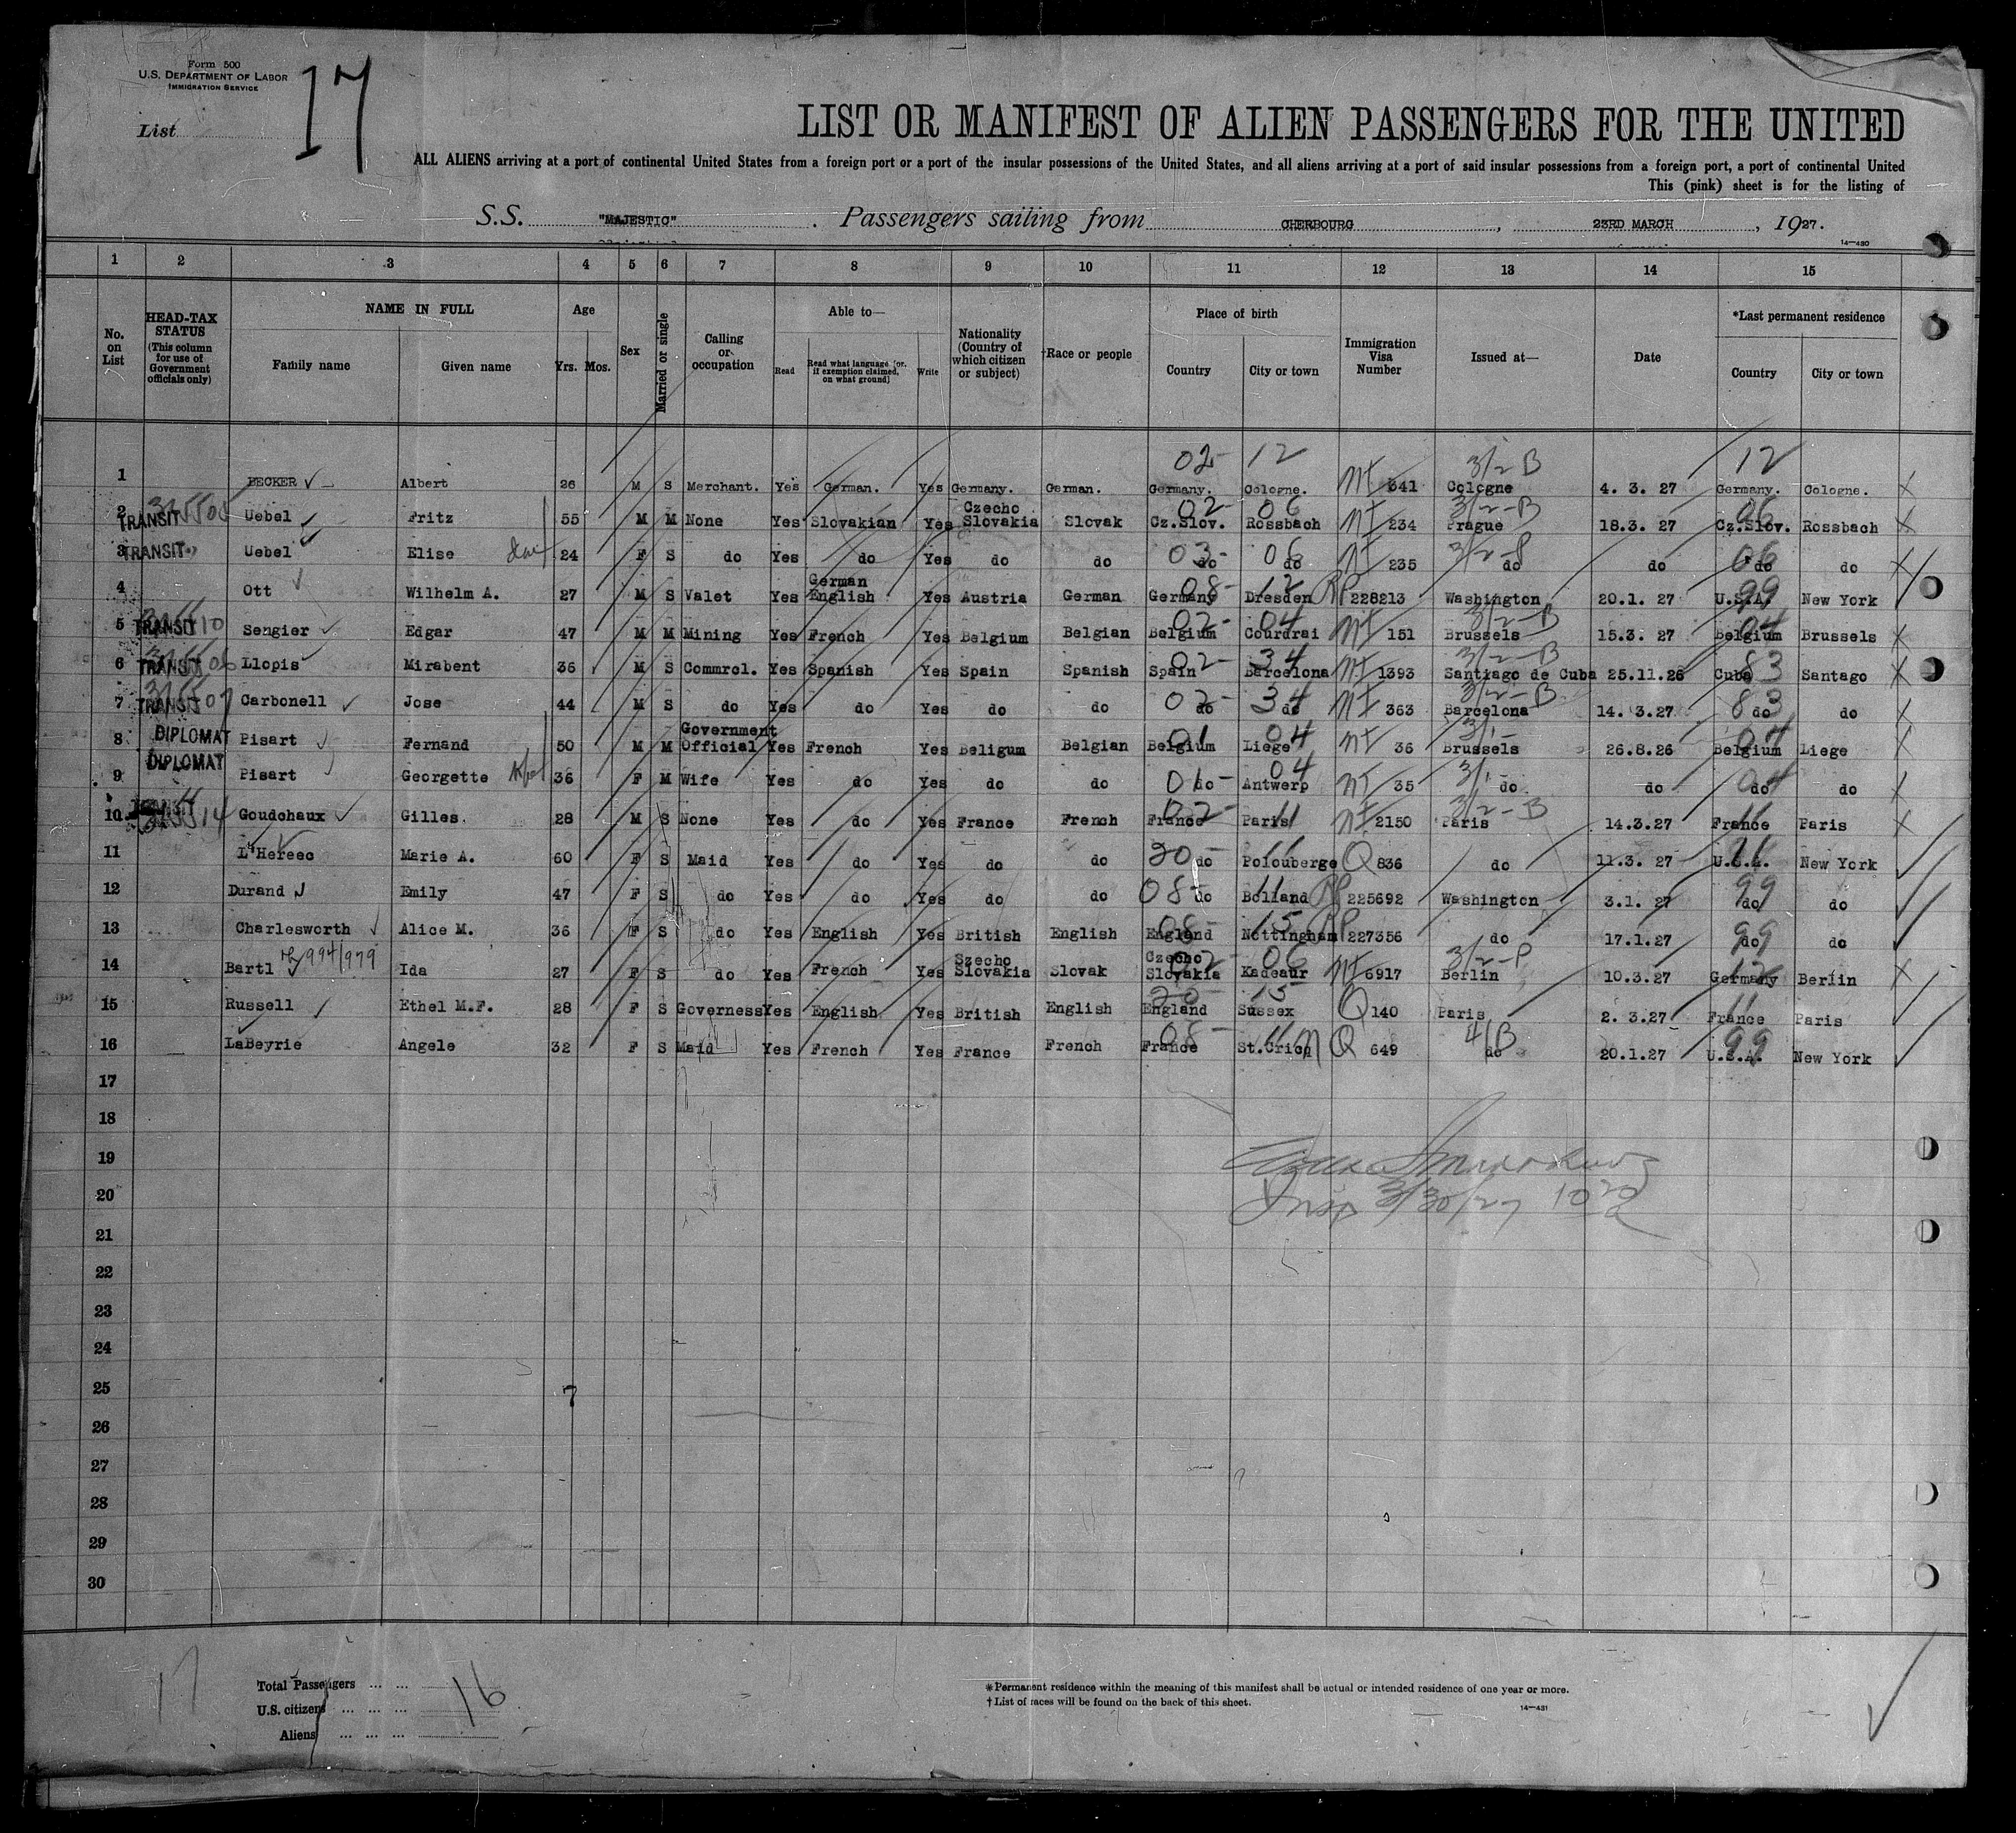 Form 500
U.S. DEPARTMENT OF LABOR
IMMIGRATION SERVICE
List 17
LIST OR MANIFEST OF ALIEN PASSENGERS FOR THE UNITED
ALL ALIENS arriving at a port of continental United States from a foreign port or a port of the insular possessions of the United States, and all aliens arriving at a port of said insular possessions from a foreign port, a port of continental United
This (pink) sheet is for the listing of
S.S. "MAJESTIC" . Passengers sailing from CHERBOURG , 23RD MARCH , 1927.
14—430
1 2 3 4 5 6 7 8 9 10 11 12 13 14 15
No. on List
HEAD-TAX STATUS (This column for use of Government officials only)
NAME IN FULL
Family name
Given name
Age
Yrs. Mos.
Sex
Married or single
Calling or occupation
Able to—
Read
Read what language [or, if exemption claimed, on what ground]
Write
Nationality (Country of which citizen or subject)
†Race or people
Place of birth
Country
City or town
Immigration Visa Number
Issued at—
Date
*Last permanent residence
Country
City or town
02- 12 3/2 B 12
1 BECKER Albert 26 M S Merchant. Yes German. Yes Germany. German. Germany. Cologne. NI 641 Cologne 4. 3. 27 Germany. Cologne. X
02- 06 3/2-B 06
2 TRANSIT Uebel Fritz 55 M M None Yes Slovakian Yes Czecho Slovakia Slovak Cz.Slov. Rossbach NI 234 Prague 18.3. 27 Cz.Slov. Rossbach X
03- 06 06
3 TRANSIT Uebel Elise 24 F S do Yes do Yes do do do do NI 235 do do do do X
08- 12 99
4 Ott Wilhelm A. 27 M S Valet Yes German English Yes Austria German Germany Dresden RP 228213 Washington 20.1. 27 U.S.A. New York
02- 04 3/2-B 04
5 TRANSIT Sengier Edgar 47 M M Mining Yes French Yes Belgium Belgian Belgium Courdrai NI 151 Brussels 15.3. 27 Belgium Brussels X
02- 34 3/2-B 83
6 TRANSIT Llopis Mirabent 36 M S Commrcl. Yes Spanish Yes Spain Spanish Spain Barcelona NI 1393 Santiago de Cuba 25.11.26 Cuba Santago X
02- 34 3/2-B 83
7 TRANSIT Carbonell Jose 44 M S do Yes do Yes do do do do NI 363 Barcelona 14. 3.27 do do X
01 04 3/1- 04
8 DIPLOMAT Pisart Fernand 50 M M Government Official Yes French Yes Beligum Belgian Belgium Liege NI 36 Brussels 26.8.26 Belgium Liege X
01- 04 3/1- 04
9 DIPLOMAT Pisart Georgette 36 F M Wife Yes do Yes do do do Antwerp NI 35 do do do do X
02- 11 3/2-B 11
10 Goudchaux Gilles. 28 M S None Yes do Yes France French France Paris NI 2150 Paris 14.3.27 France Paris X
20- 11
11 L'Hereec Marie A. 60 F S Maid Yes do Yes do do do Polouberge Q 836 do 11.3. 27 U.S.A. New York
08- 11 99
12 Durand Emily 47 F S do Yes do Yes do do do Bolland RP 225692 Washington 3.1. 27 do do
08- 15 99
13 Charlesworth Alice M. 36 F S do Yes English Yes British English England Nottingham RP 227356 do 17.1.27 do do
994/979 02- 06 12
14 Bartl Ida 27 F S do Yes French Yes Szecho Slovakia Slovak Czecho Slovakia Kadeaur NI 6917 Berlin 10.3.27 Germany Berlin X
20- 15 11
15 Russell Ethel M.F. 28 F S Governess Yes English Yes British English England Sussex Q 140 Paris 2. 3.27 France Paris
08- 11 4/B 99
16 LaBeyrie Angele 32 F S Maid Yes French Yes France French France St.Cricq Q 649 do 20.1.27 U.S.A. New York
17
18
19
20 Insp 3/30/27
21
22
23
24
25 7
26
27
28
29
30
17
Total Passengers ... ... 16
U.S. citizens ... ... ...
Aliens ... ... ...
*Permanent residence within the meaning of this manifest shall be actual or intended residence of one year or more.
†List of races will be found on the back of this sheet.
14—431